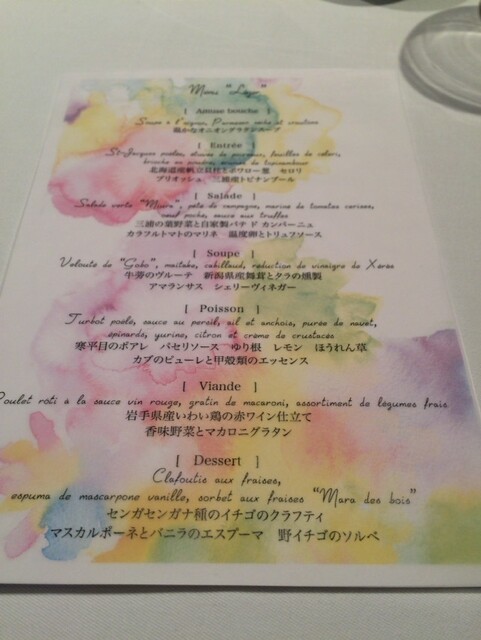 Menu "Lazer"
[ Amuse bouche ]
Soupe à l'oignon, Parmesan séché et croutons
温かなオニオングラタンスープ
[ Entrée ]
St-Jacques poêlées, étuvée de poireaux, feuilles de céleri,
brioche en poudre, de topinambour
北海道産帆立貝柱とポワロー葱 セロリ
ブリオッシュ 三浦産トピナンブール
[ Salade ]
Salade verte "Miura", pâté de campagne, marine de tomates cerises,
oeuf poché, sauce aux truffes
三浦の葉野菜と自家製パテ ド カンパーニュ
カラフルトマトのマリネ 温度卵とトリュフソース
[ Soupe ]
Velouté de "Gobo", maitake, cabillaud, réduction de vinaigre de Xeres
牛蒡のヴルーテ 新潟県産舞茸とタラの燻製
アマランサス シェリーヴィネガー
[ Poisson ]
Turbot poêlé, sauce au persil, ail et anchois, purée de navet,
épinards, yurine, citron et crème de crustacés
寒平目のポアレ パセリソース ゆり根 レモン ほうれん草
カブのピューレと甲殻類のエッセンス
[ Viande ]
Poulet roti à la sauce vin rouge, gratin de macaroni, assortiment de légumes frais
岩手県産いわい鶏の赤ワイン仕立て
香味野菜とマカロニグラタン
[ Dessert ]
Clafoutis aux fraises,
espuma de mascarpone vanille, sorbet aux fraises "Mara des bois"
センガセンガナ種のイチゴのクラフティ
マスカルポーネとバニラのエスプーマ 野イチゴのソルベ